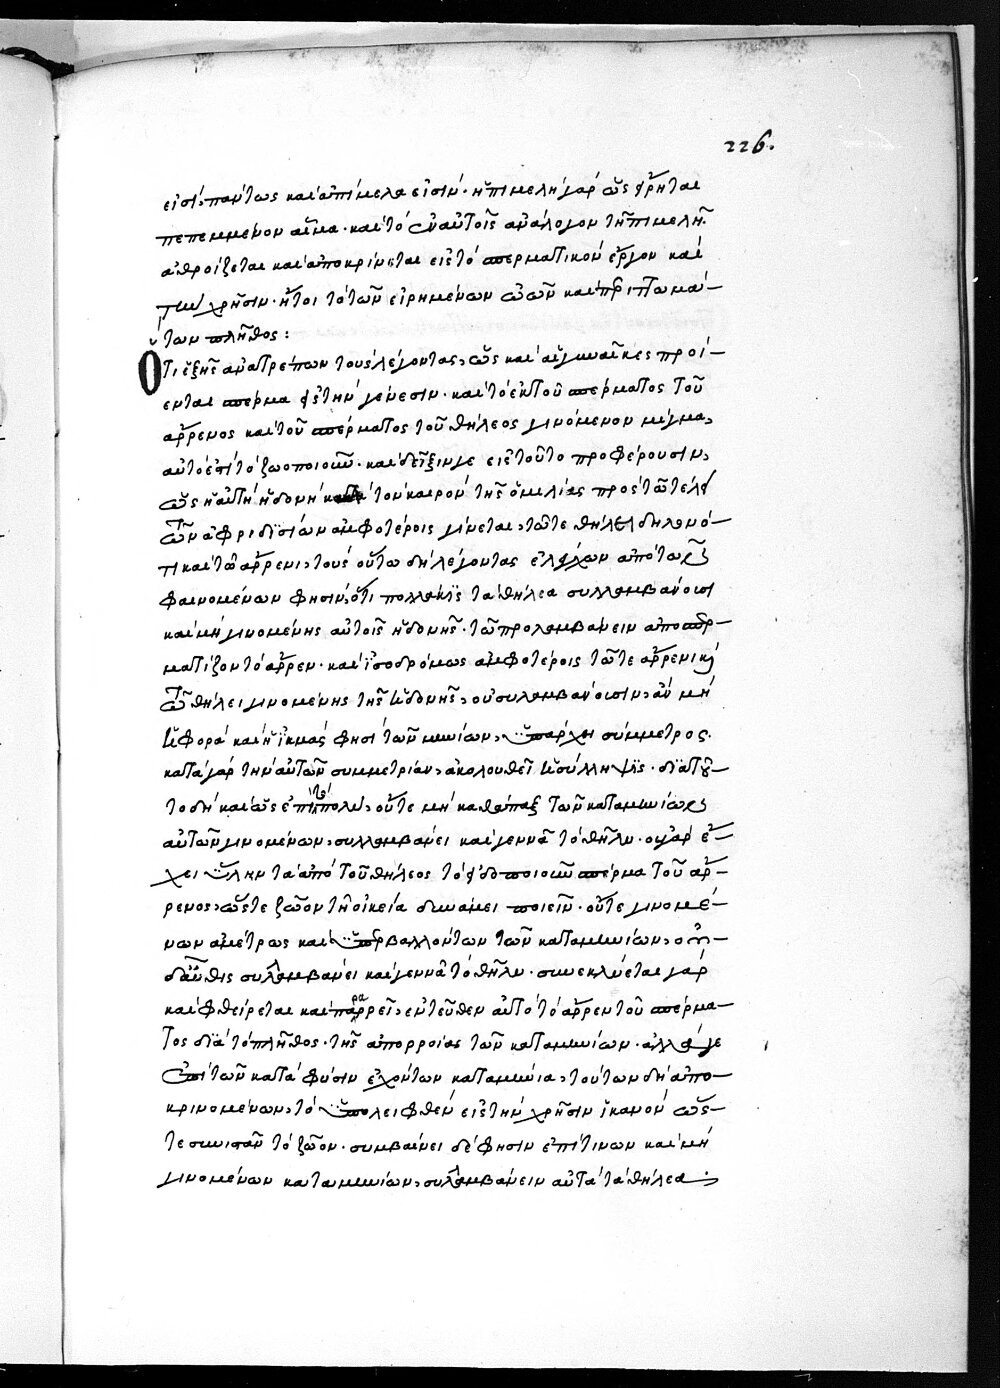 226.
εἰσί, πάντως καὶ ἀπίμελα εἰσίν· ἡ πιμελὴ γὰρ ὡς εἴρηται
πεπεμμένον αἷμα· καὶ τὸ ἐν αὐτοῖς ἀνάλογον τῇ πιμελῇ.
ἀθροίζεται καὶ ἀποκρίνεται εἰς τὸ σπερματικὸν ἔργον καὶ
τὴν χρῆσιν· ἤτοι τὸ τῶν εἰρημένων ὠῶν καὶ περιττωμά-
των πλῆθος:
Ὅτι ἑξῆς ἀνατρέπων τοὺς λέγοντας, ὡς καὶ αἱ γυναῖκες προΐ-
ενται σπέρμα εἰς τὴν γένεσιν· καὶ τὸ ἐκ τοῦ σπέρματος τοῦ
ἄρρενος καὶ τοῦ σπέρματος τοῦ θήλεος γινόμενον μίγμα,
αὐτό ἐστι τὸ ζωοποιοῦν· καὶ δεῖξίν γε εἰς τοῦτο προφέρουσιν,
ὡς ἡ αὐτὴ ἡδονὴ κατὰ τὸν καιρὸν τῆς ὁμιλίας πρὸς τῷ τέλει
τῶν ἀφροδισίων ἀμφοτέροις γίνεται, τῷ τε θήλει δηλονό-
τι καὶ τῷ ἄρρενι, τοὺς οὕτω δὴ λέγοντας ἐλέγχων ἀπὸ τῶν
φαινομένων φησίν, ὅτι πολλάκις τὰ θήλεα συλλαμβάνουσι
καὶ μὴ γινομένης αὐτοῖς ἡδονῆς· τῷ προλαμβάνειν ἀποσπερ-
ματίζον τὸ ἄρρεν· καὶ ἰσοδρόμως ἀμφοτέροις τῷ τε ἄρρενι καὶ
τῷ θήλει γινομένης τῆς ἡδονῆς, οὐ συλαμβάνουσιν, ἂν μὴ
ἡ φορὰ καὶ ἡ ἰκμάς φησι τῶν μηνίων, ὑπάρχει σύμμετρος.
κατὰ γὰρ τὴν αὐτῶν συμμετρίαν, ἀκολουθεῖ ἡ σύλληψις· διὰ τοῦ-
το δὴ καὶ ὡς ἐπιτοπολὺ, οὔτε μὴ καθάπαξ τῶν καταμηνίων
αὐτῶν γινομένων, συλλαμβάνει καὶ γεννᾷ τὸ θῆλυ· οὐ γὰρ ἔ-
χει ὕλην τὰ ἀπὸ τοῦ θήλεος τὸ εἰδοποιοῦν σπέρμα τοῦ ἄρ-
ρενος, ὥστε ζῶον τῇ οἰκείᾳ δυνάμει ποιεῖν· οὔτε γινομέ-
νων ἀμέτρως καὶ ὑπερβαλλόντων τῶν καταμηνίων,
δ' αὖθις συλλαμβάνει καὶ γεννᾷ τὸ θῆλυ· συνεκλύεται γὰρ
καὶ φθείρεται καὶ παραρρεῖ, ἐντεῦθεν αὐτὸ τὸ ἄρρεν τοῦ σπέρμα-
τος διὰ τὸ πλῆθος· τῆς ἀπορροίας τῶν καταμηνίων· ἀλλά γε
ἐπὶ τῶν κατὰ φύσιν ἐχόντων καταμήνια, τούτων δὴ ἀπο-
κρινομένων, τὸ ὑπολειφθὲν εἰς τὴν χρῆσιν ἱκανὸν ὥς-
τε συνιστᾶν τὸ ζῶον· συμβαίνει δέ φησιν ἐπί τινων καὶ μὴ
γινομένων καταμηνίων, συλλαμβάνειν αὐτὰ τὰ θήλεα,